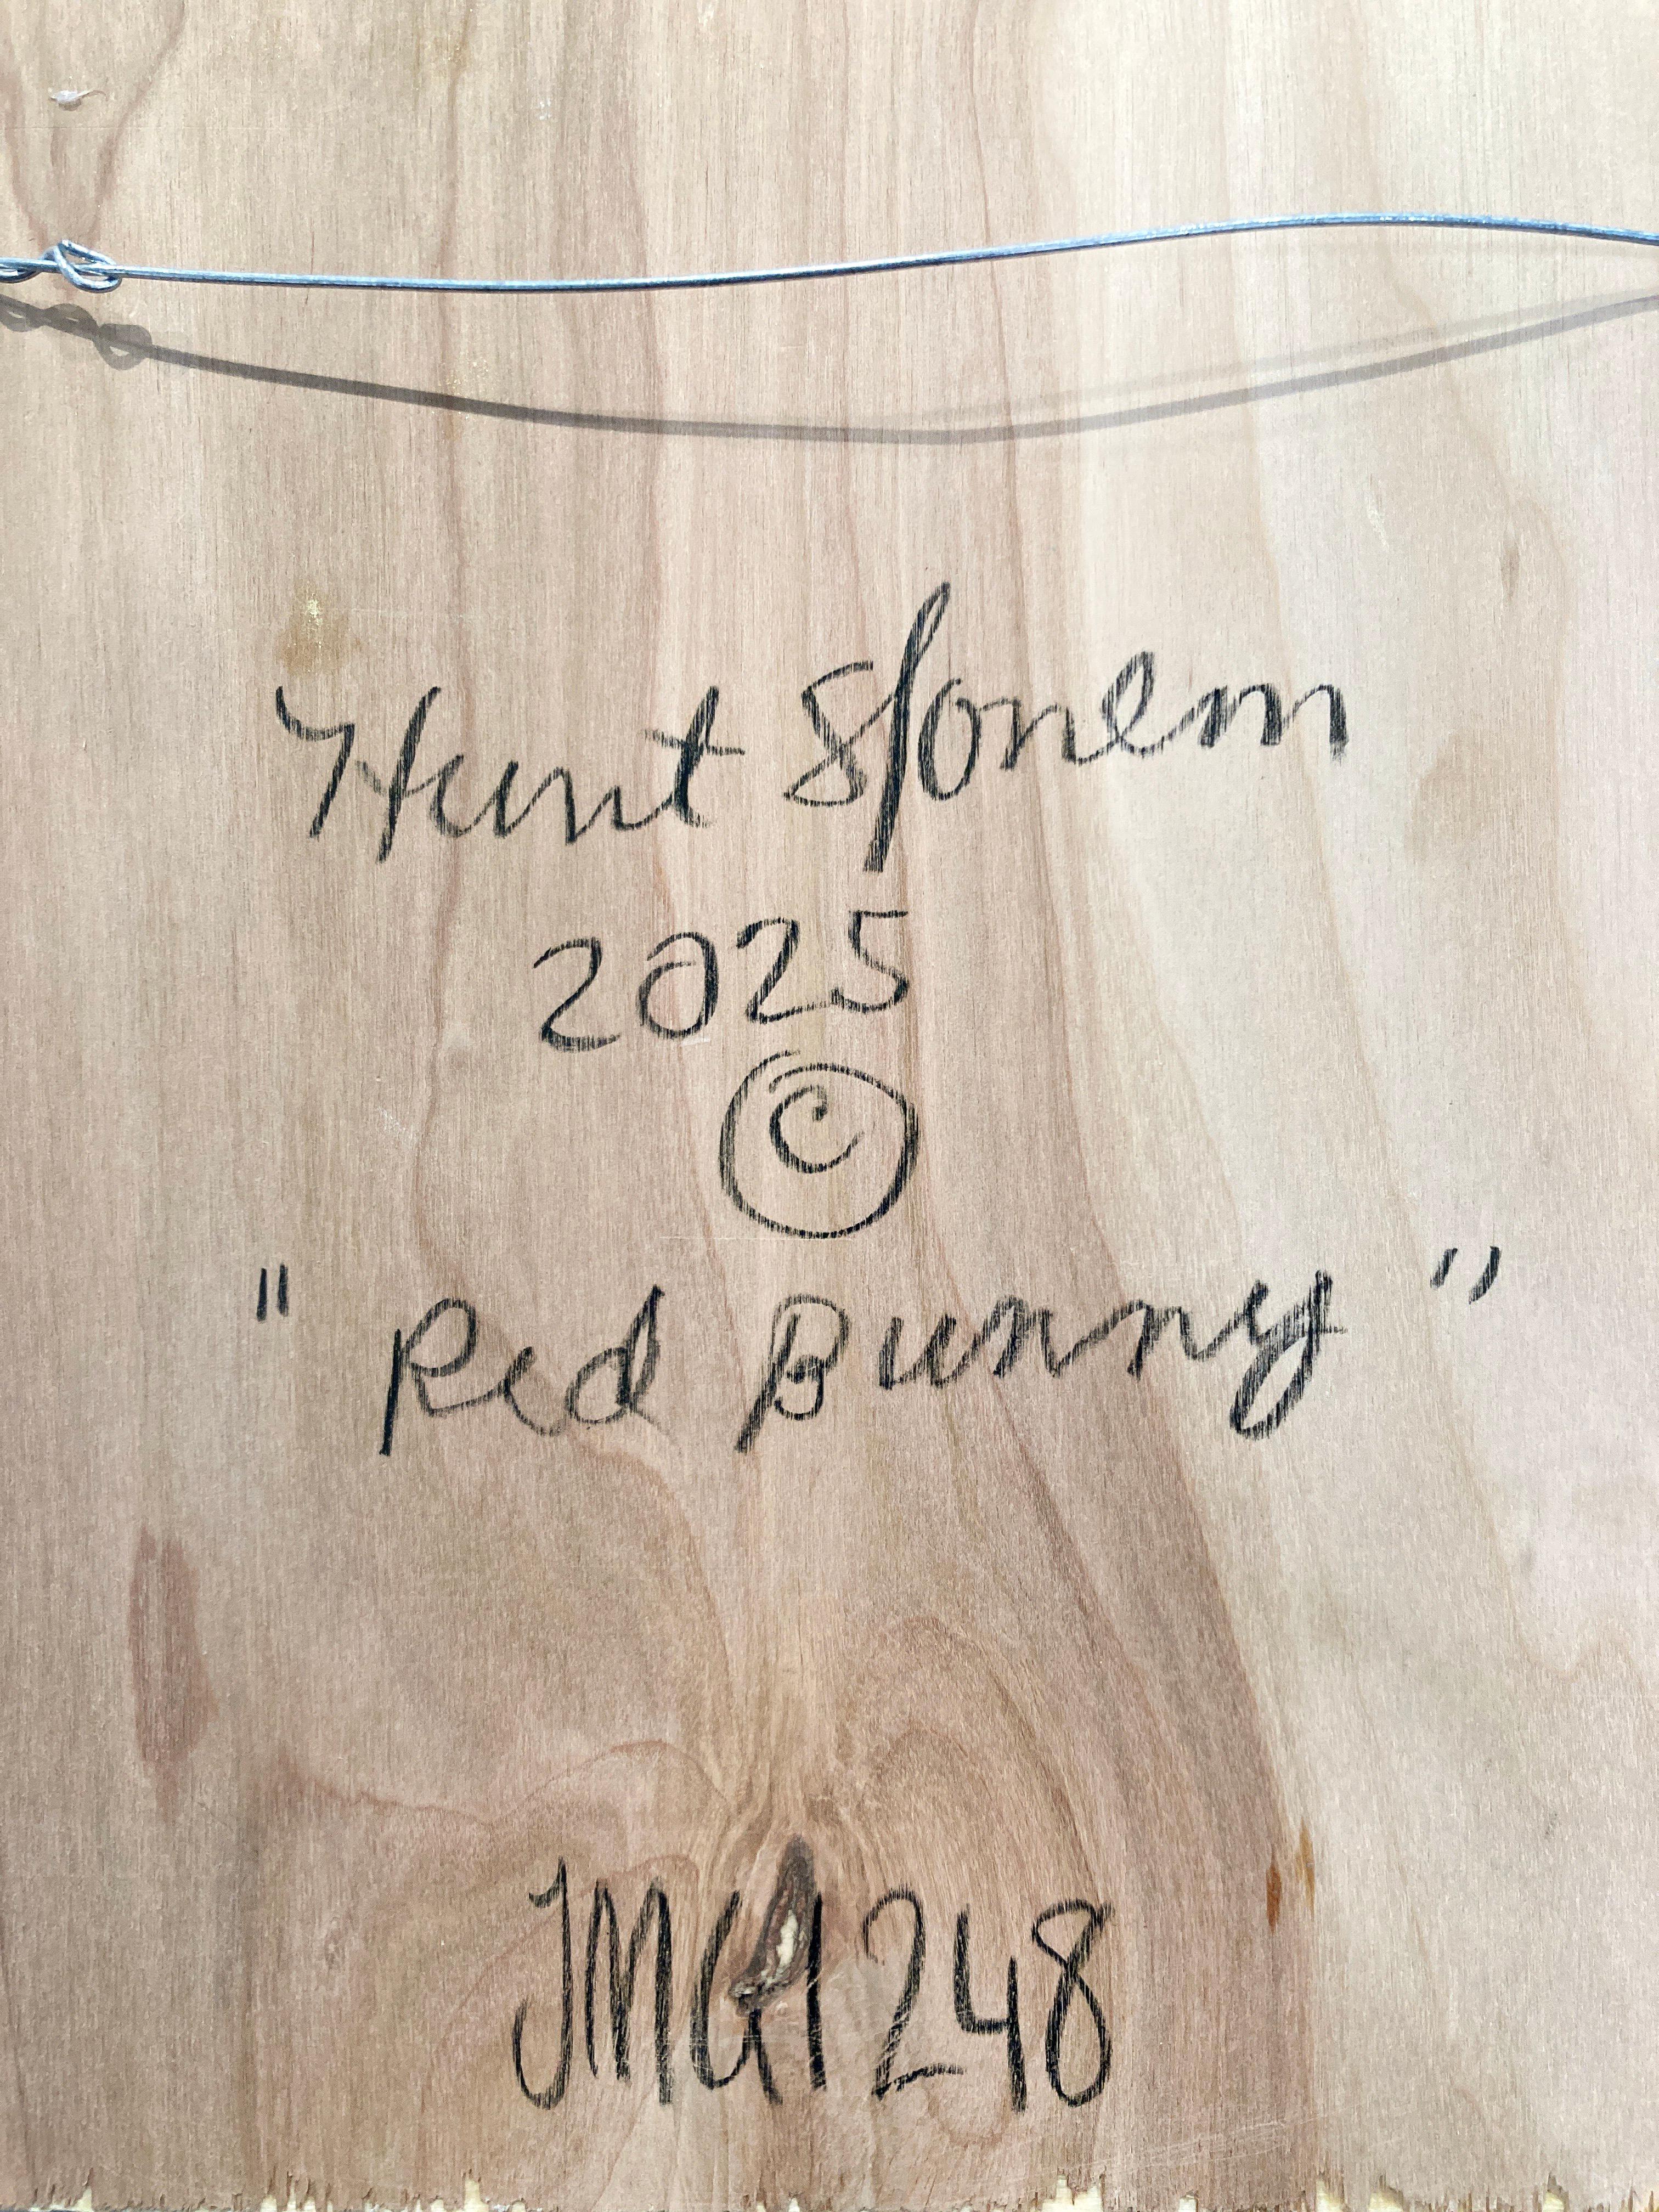 Hunt Slonem
2025
©
"Red Bunny"
JMG1248